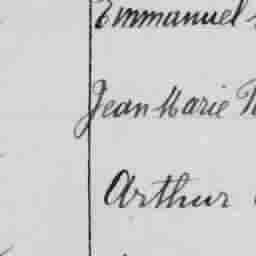 Emmanuel
Jean Marie
Arthur